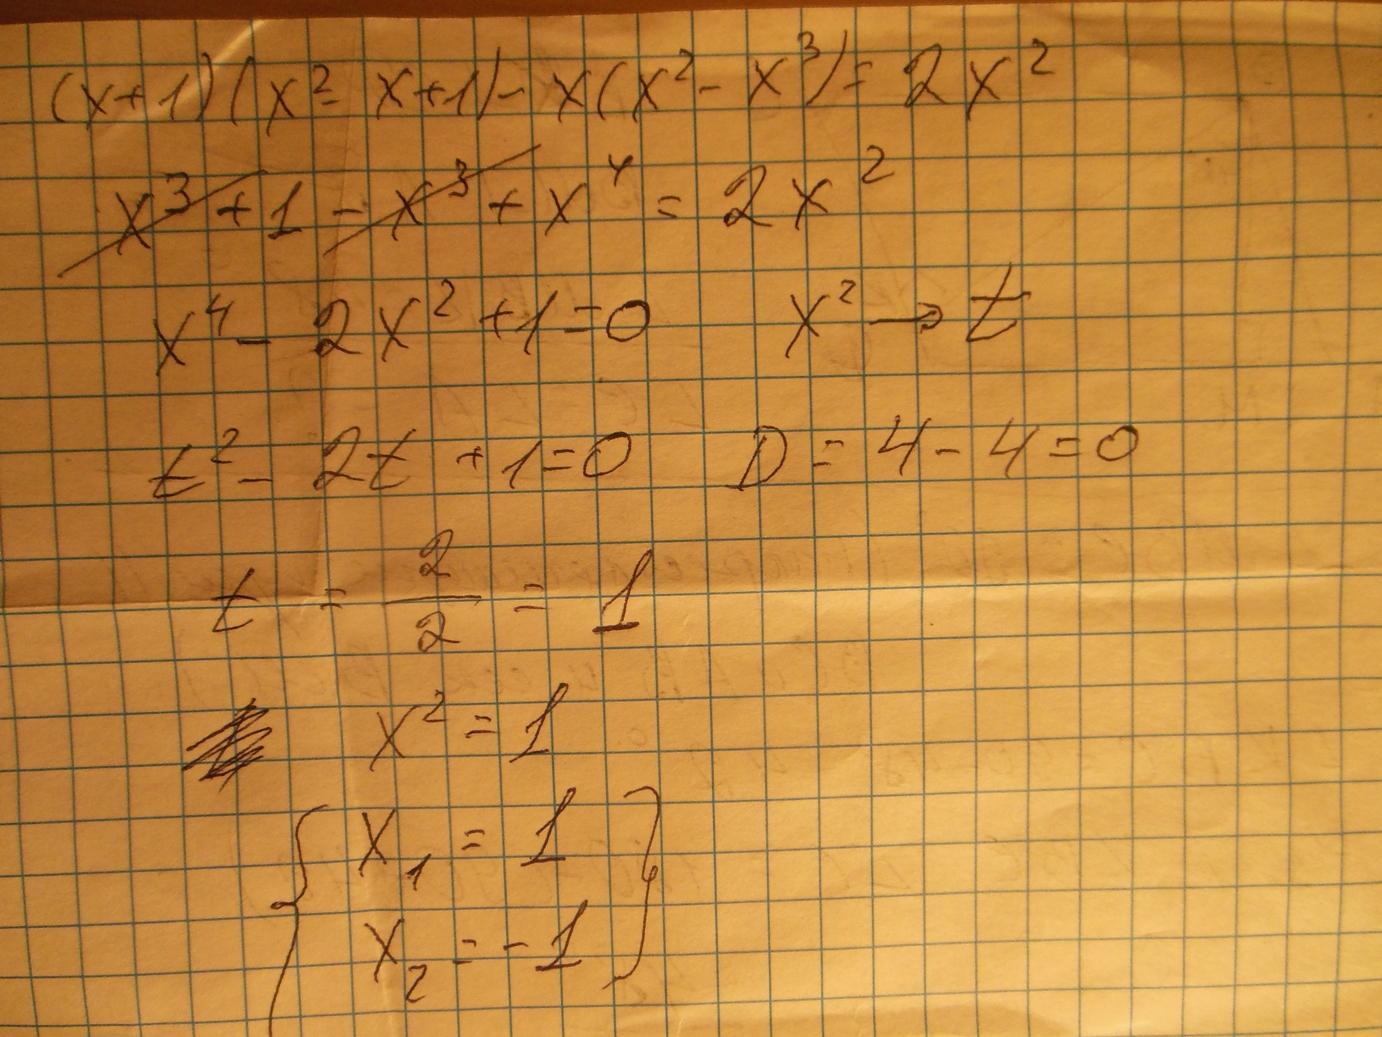 (x+1)(x²-x+1)-x(x²-x³)=2x²
x³+1-x³+x⁴=2x²
x⁴-2x²+1=0 x²→t
t²-2t+1=0 D=4-4=0
t=2/2=1
x²=1
{x₁=1
x₂=-1}